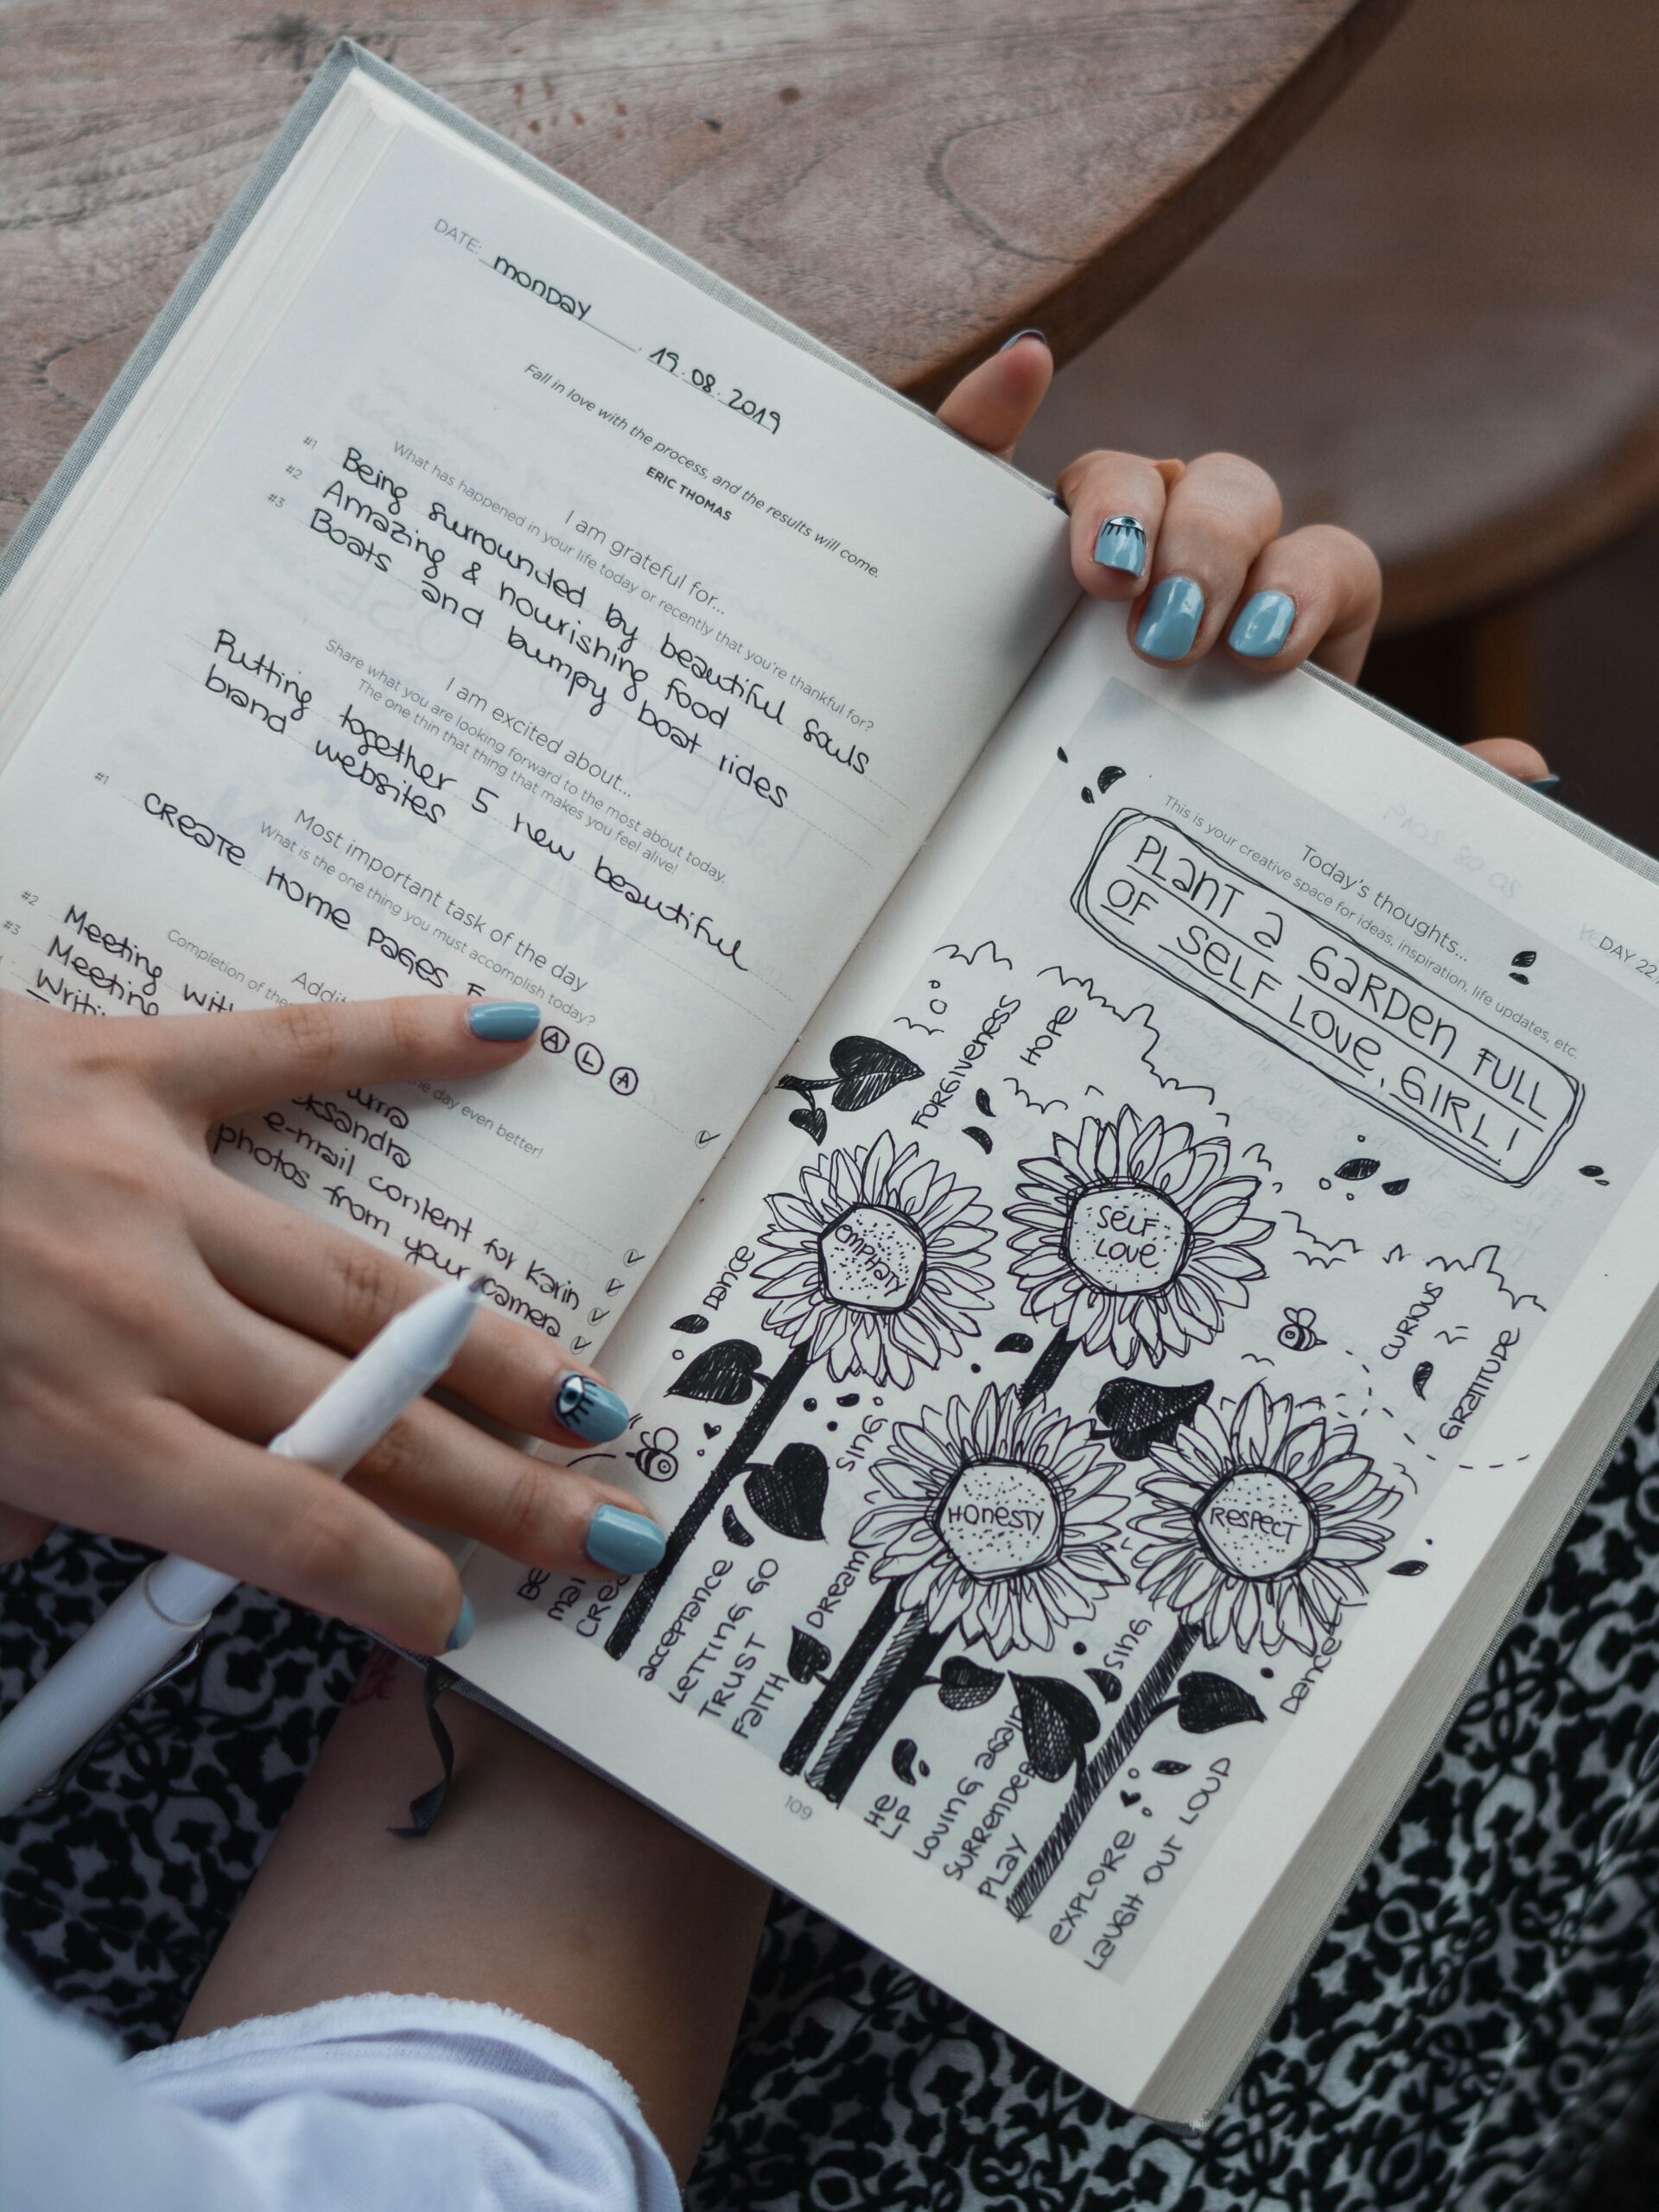 DATE: monday, 19.08.2019
Fall in love with the process, and the results will come.
ERIC THOMAS
I am grateful for...
What has happened in your life today or recently that you're thankful for?
#1 Being surrounded by beautiful souls
#2 Amazing & nourishing food
#3 Boats and bumpy boat rides
I am excited about...
Share what you are looking forward to the most about today.
The one thin that thing that makes you feel alive!
Putting together 5 new beautiful
brand websites
Most important task of the day
What is the one thing you must accomplish today?
#1 CREATE HOME PAGES
A L A
Completion of
the day even better!
#2 Meeting
#3 Meeting
e-mail content for Karin
photos from your camera
DAY 22
Today's thoughts...
This is your creative space for ideas, inspiration, life updates, etc.
PLANT a GARDEN FULL
OF SELF LOVE, GIRL!
FORGIVENESS
HOPE
EMPHATY
SELF
LOVE
DANCE
CURIOUS
GRATITUDE
SING
HONESTY
RESPECT
acceptance
LETTING GO
TRUST
FAITH
DREAM
SING
DANCE
HE
LP
LOVING again
SURRENDER
PLAY
EXPLORE
LAUGH OUT LOUD
109